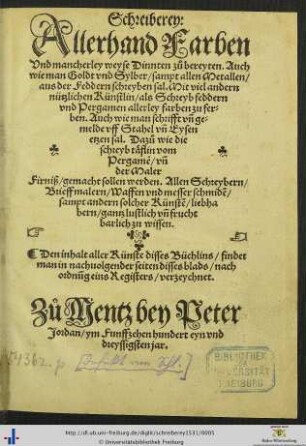 Schreiberey:
Allerhand Farben
Vnd mancherley weyse Dinnten zů bereyten. Auch
wie man Goldt vnd Sylber/ sampt allen Metallen/
aus der Feddern schreyben sal. Mit viel andern
nützlichen Künstlin/ als Schreyb feddern
vnd Pergamen allerley farben zu fer-
ben. Auch wie man schrifft vñ ge-
melde vff Stahel vñ Eysen
etzen sal. Dazů wie die
schreyb täflin vom
Pergamē/ vñ
der Maler
Firniß/ gemacht sollen werden. Allen Schreybern/
Brieffmalern/ Waffen vnd messer schmidē/
sampt andern solcher Künstē/ liebha
bern/ gantz lustlich vñ frucht
barlich zu wissen.
Den inhalt aller Künste disses Büchlins/ findet
man in nachuolgender seiten disses blads/ nach
ordnūg eins Registers/ verzeychnet.
Zů Mentz bey Peter
Jordan/ ym Funffzehen hundert eyn vnd
dreyssigsten jar.
BIBLIOTHEK
FREIBURG
http://dl.ub.uni-freiburg.de/diglit/schreiberey1531/0005
© Universitätsbibliothek Freiburg